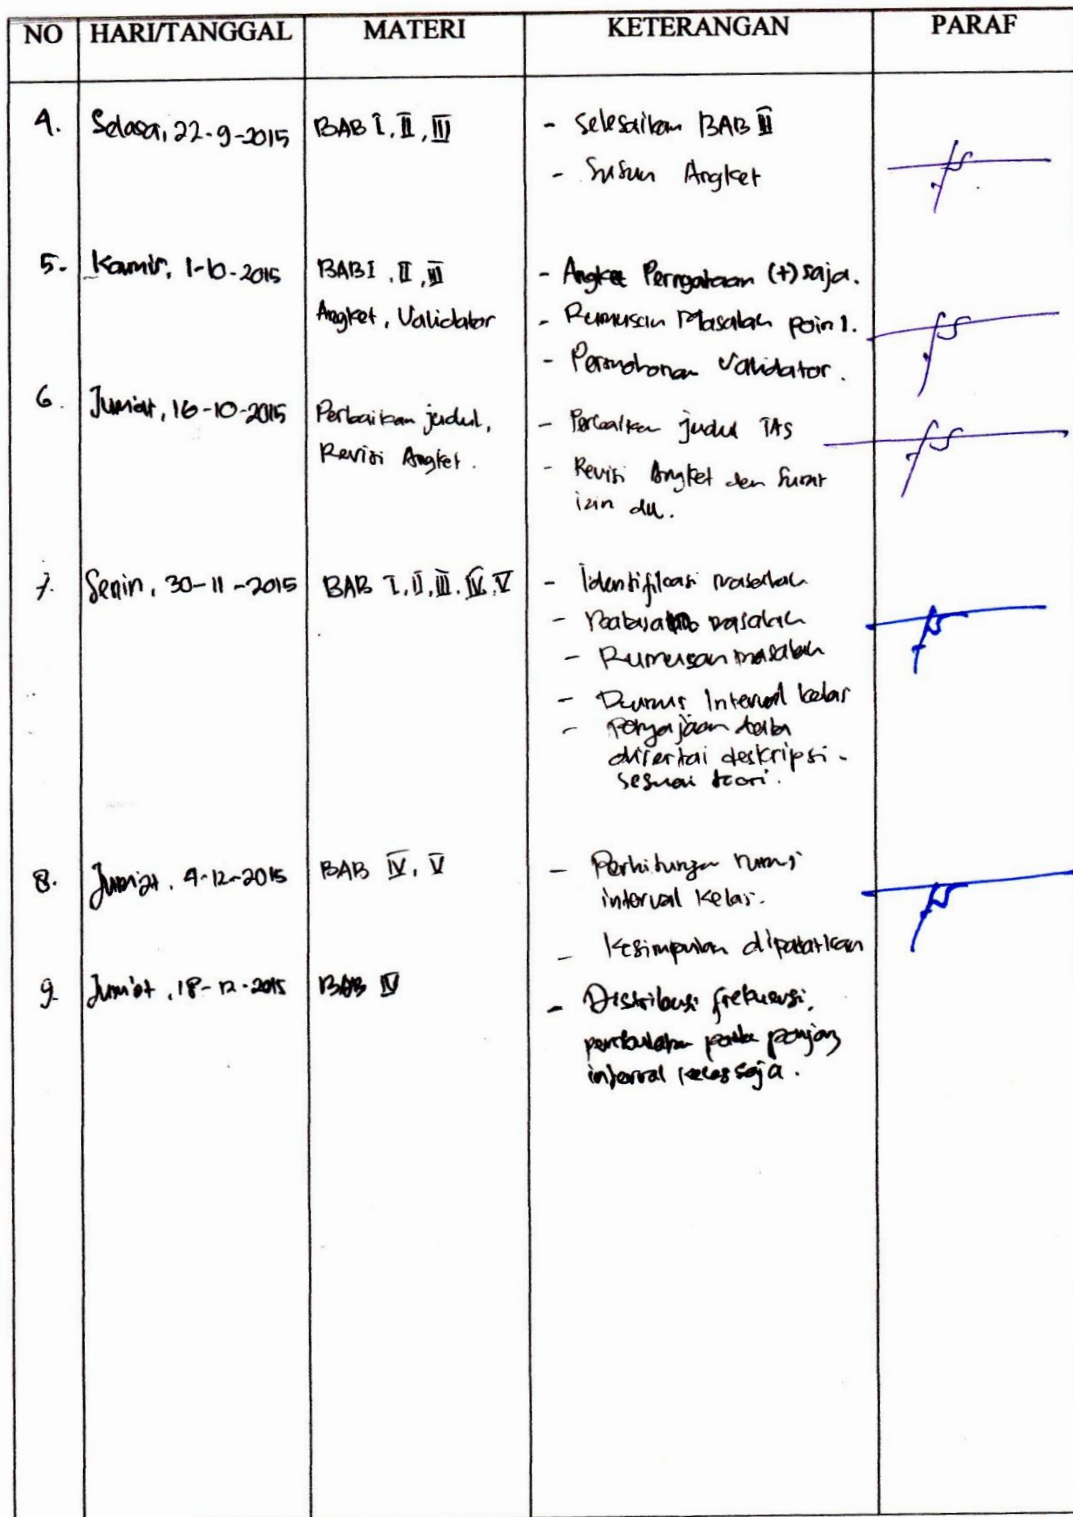 NO HARI/TANGGAL MATERI KETERANGAN PARAF
4. Selasa, 22-9-2015 BAB I, II, III - Selesaikan BAB II
- Susun Angket
5. Kamis, 1-10-2015 BAB I, II, III - Angket Pernyataan (+) saja.
Angket, Validator - Rumusan Masalah poin 1.
- Permohonan Validator.
6. Jum'at, 16-10-2015 Perbaikan judul, - Perbaikan judul TAS
Revisi Angket. - Revisi Angket dan Surat
izin dll.
7. Senin, 30-11-2015 BAB I, II, III, IV, V - Identifikasi masalah
- masalah
- Rumusan masalah
- Rumus Interval kelas
- Penyajian data
disertai deskripsi -
sesuai teori.
8. Jum'at, 4-12-2015 BAB IV, V - Perhitungan rumus
interval kelas.
- Kesimpulan dipadatkan
9. Jum'at, 18-12-2015 BAB IV - Distribusi frekuensi,
pembulatan pada panjang
interval kelas saja.